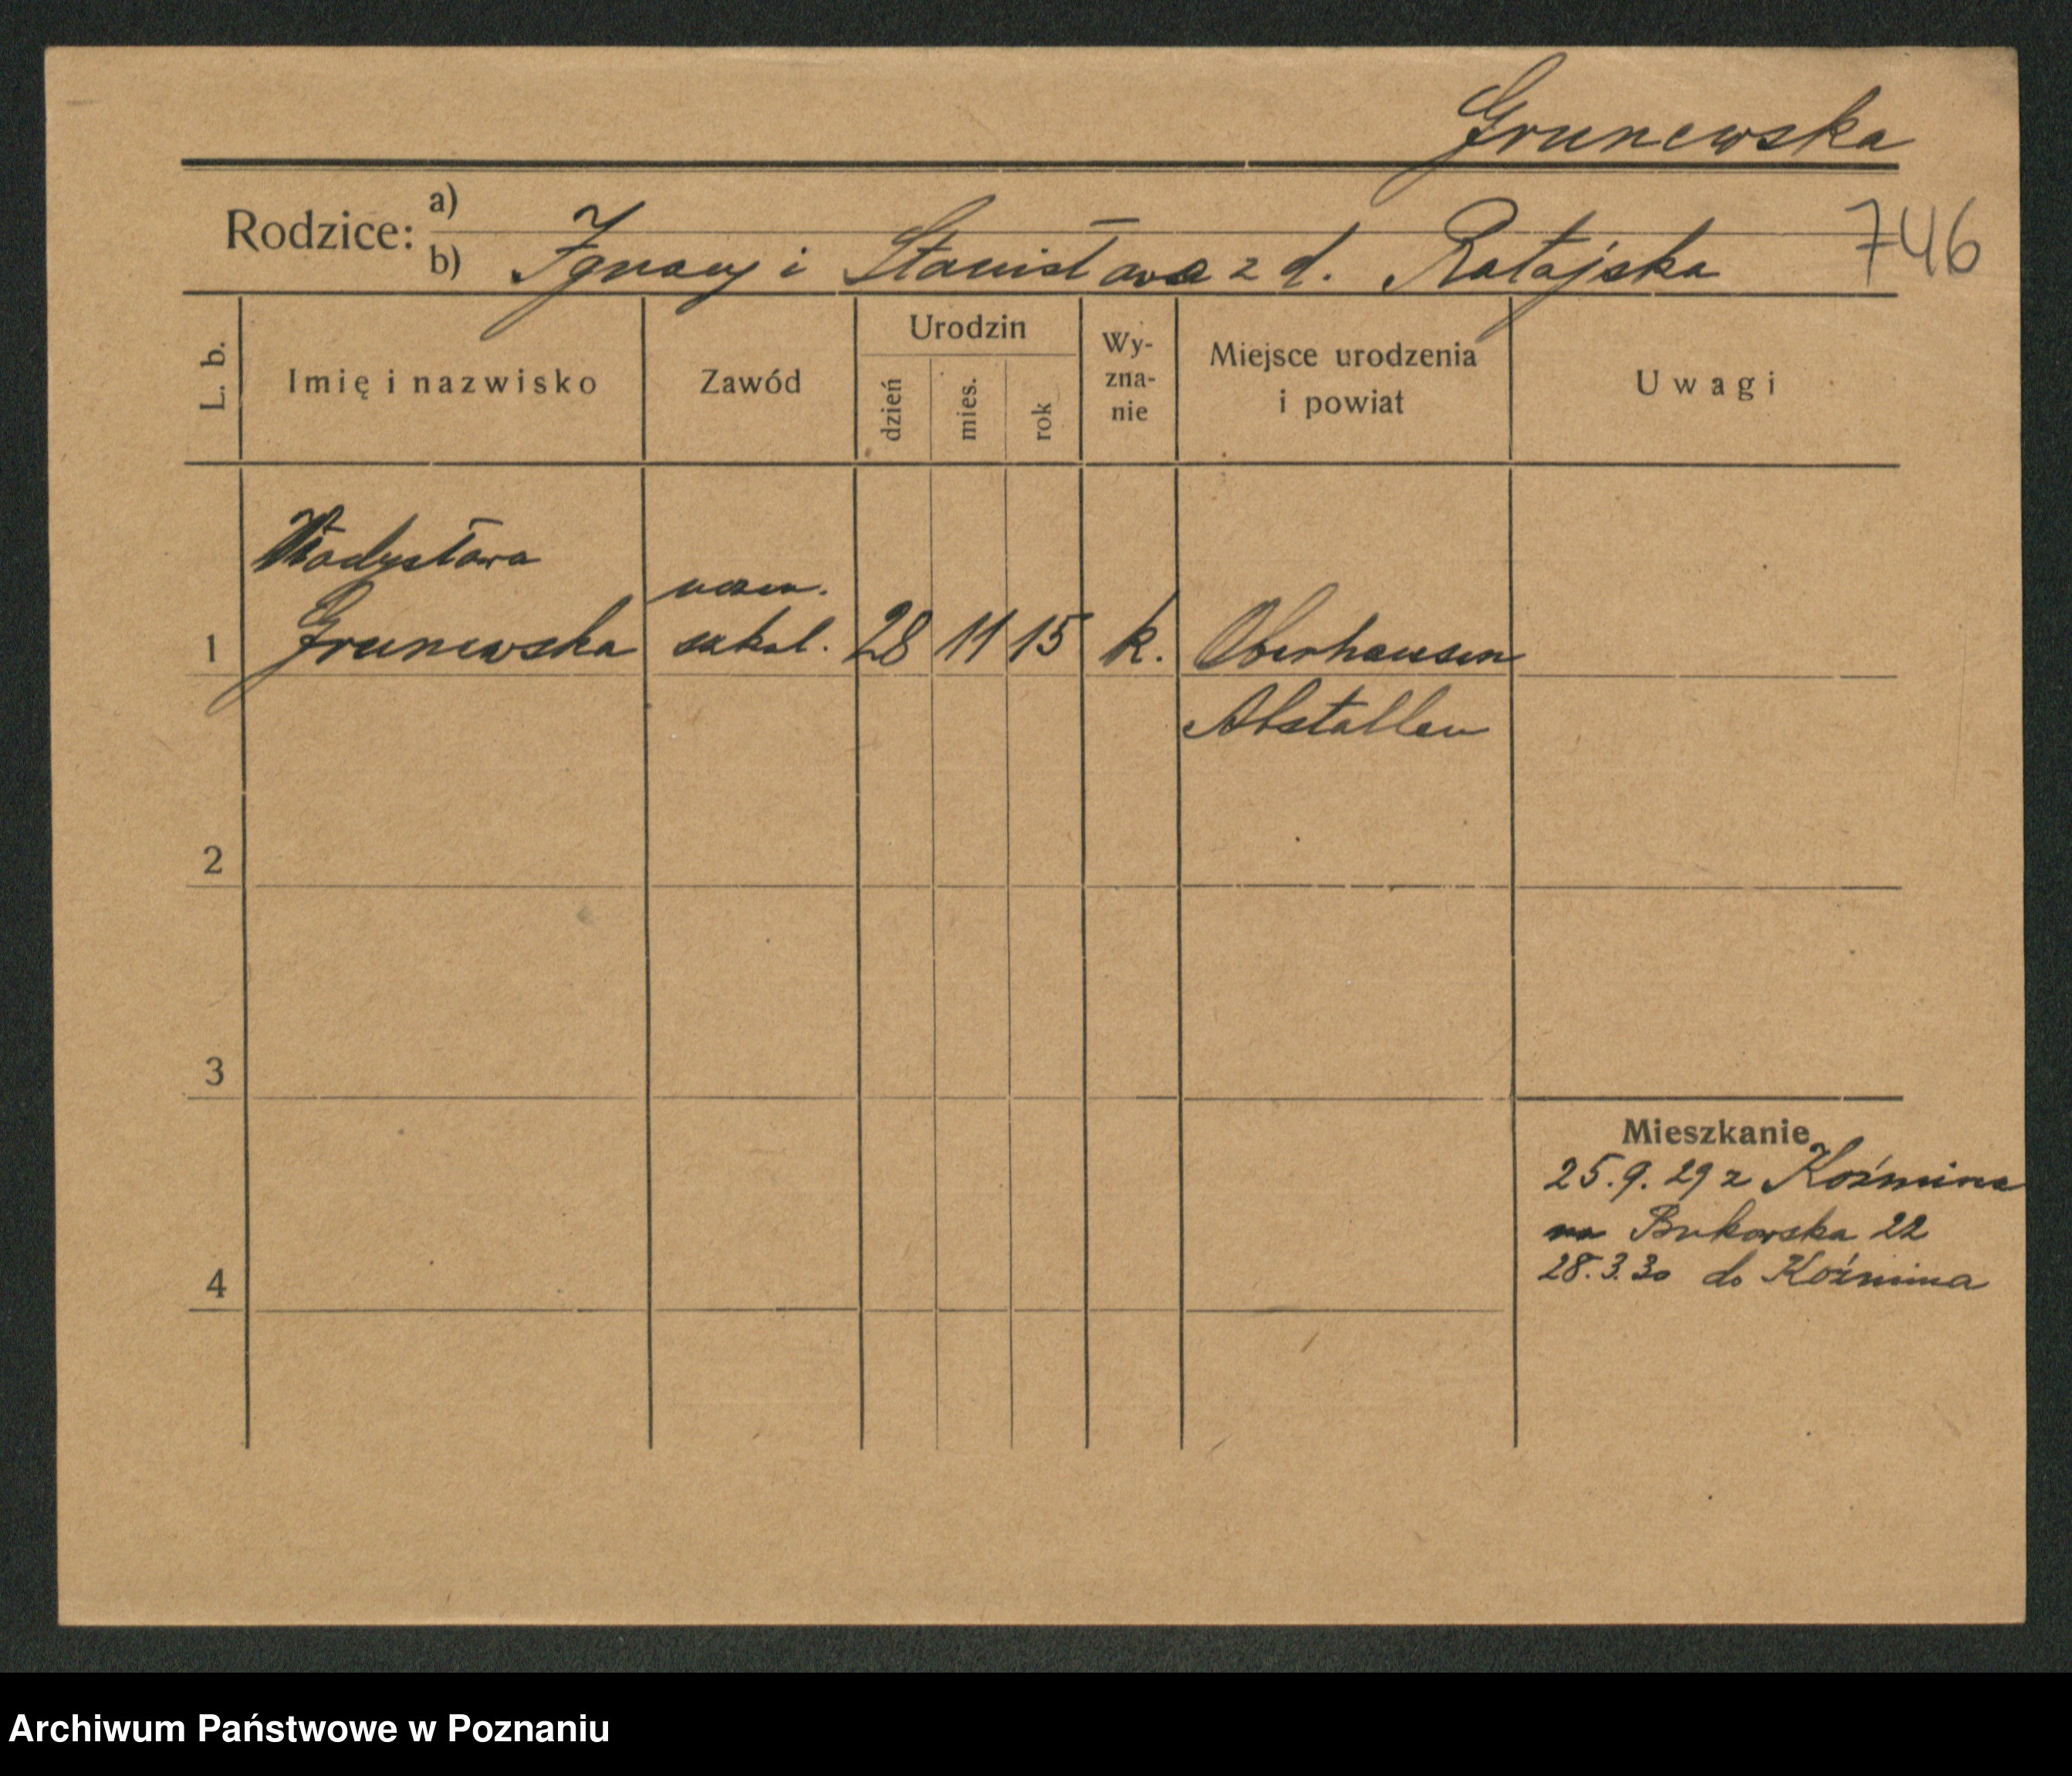 Grunewska
Rodzice: a)
b) Ignacy i Stanisława z d. Ratajska 746
L. b. Imię i nazwisko Zawód Urodzin dzień mies. rok Wy-zna-nie Miejsce urodzenia i powiat Uwagi
Władysława
uczen.
1 Grunewska szkol. 28 11 15 k. Oberhausen
Alstallen
2
3
Mieszkanie
25.9.29 z Koźmina
na Bukowska 22
4 28.3.30 do Koźmina
Archiwum Państwowe w Poznaniu